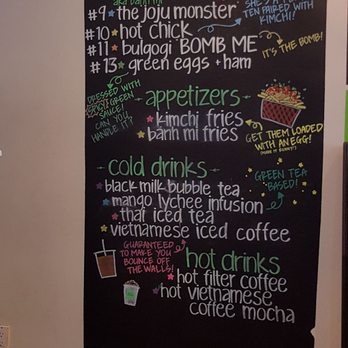 aka banh mi
#9 the joju monster
SHE'S A
TEN PAIRED WITH
KIMCHI!
#10 hot chick
#11 bulgogi BOMB ME
IT'S THE BOMB!
#13 green eggs + ham
DRESSED WITH
SPICY GREEN
SAUCE!
CAN YOU
HANDLE IT?
appetizers
kimchi fries
banh mi fries
GET THEM LOADED
WITH AN EGG!
cold drinks
GREEN TEA
BASED!
black milk bubble tea
mango lychee infusion
thai iced tea
vietnamese iced coffee
GUARANTEED
TO MAKE YOU
BOUNCE OFF
THE WALLS!
hot drinks
hot filter coffee
hot vietnamese
coffee mocha